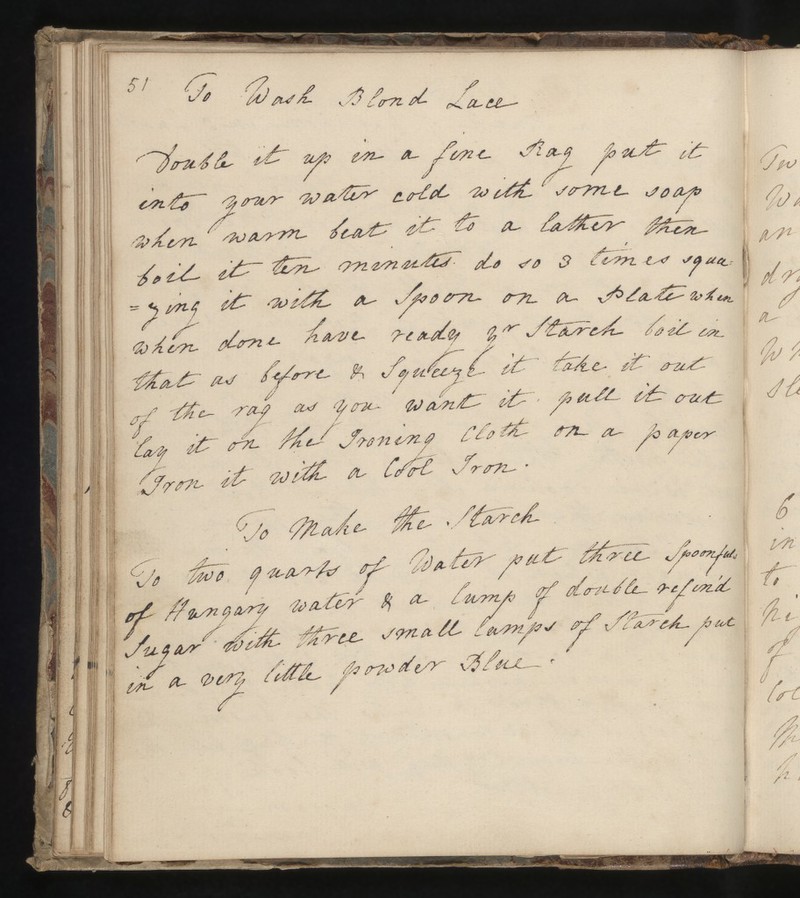 51 To Wash Blond Lace
Double it up in a fine Rag put it
into your water cold with some soap
when warm beat it to a lather then
boil it ten minutes do so 3 times squee
=zing it with a Spoon on a Plate when
when done have ready yr Starch boil in
that as before & Squeeze it take it out
of the rag as you want it pull it out
lay it on the Ironing Cloth on a paper
Iron it with a Cool Iron.
To Make the Starch
To two quarts of Water put three Spoonfuls
of Hungary water & a lump of double refin'd
Sugar with three small lumps of Starch put
in a very little powder Blue.